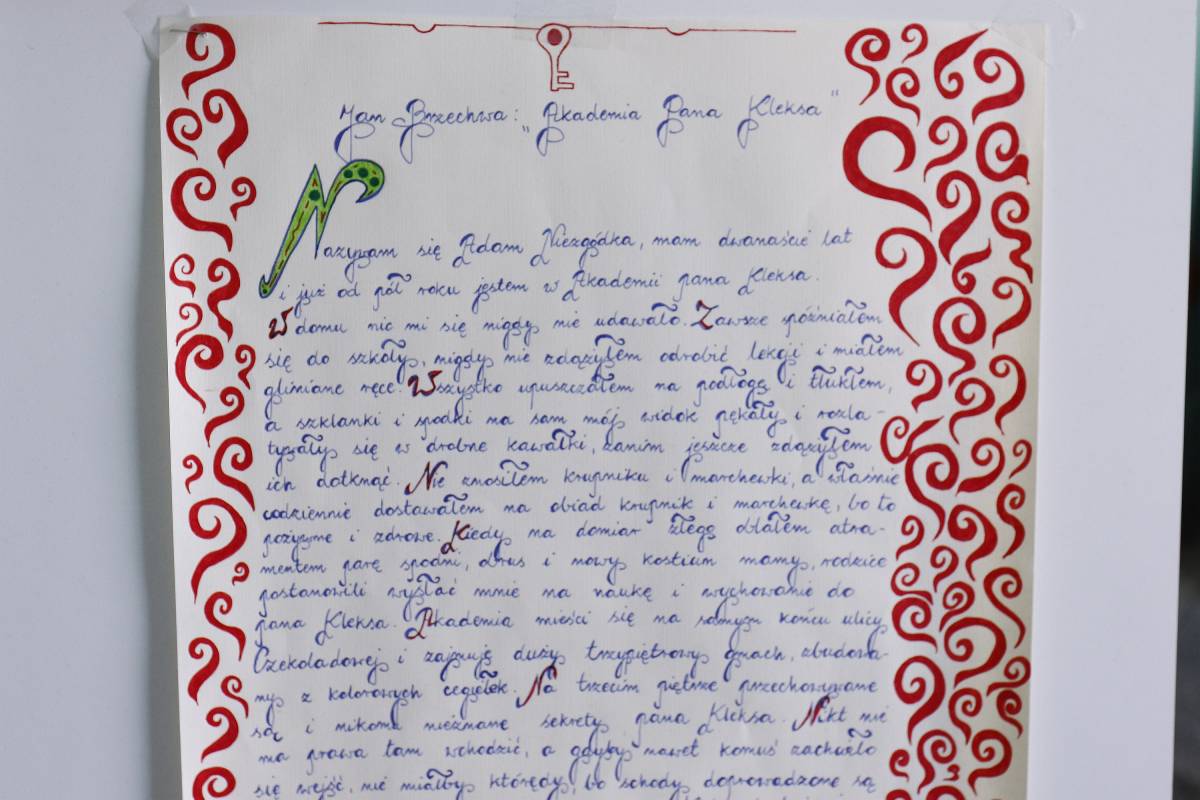 Jan Brzechwa: „Akademia Pana Kleksa"
Nazywam się Adam Niezgódka, mam dwanaście lat
i już od pół roku jestem w Akademii pana Kleksa.
W domu nic mi się nigdy nie udawało. Zawsze spóźniałem
się do szkoły, nigdy nie zdążyłem odrobić lekcji i miałem
gliniane ręce. Wszystko upuszczałem na podłogę i tłukłem,
a szklanki i spodki na sam mój widok pękały i rozla-
tywały się w drobne kawałki, zanim jeszcze zdążyłem
ich dotknąć. Nie znosiłem krupniku i marchewki, a właśnie
codziennie dostawałem na obiad krupnik i marchewkę, bo to
pożywne i zdrowe. Kiedy na domiar złego oblałem atra-
mentem parę spodni, obrus i nowy kostium mamy, rodzice
postanowili wysłać mnie na naukę i wychowanie do
pana Kleksa. Akademia mieści się na samym końcu ulicy
Czekoladowej i zajmuje duży trzypiętrowy gmach, zbudowa-
ny z kolorowych cegiełek. Na trzecim piętrze przechowywane
są i nikomu nieznane sekrety pana Kleksa. Nikt nie
ma prawa tam wchodzić, a gdyby nawet komuś zachciało
się wejść, nie miałby którędy, bo schody doprowadzone są